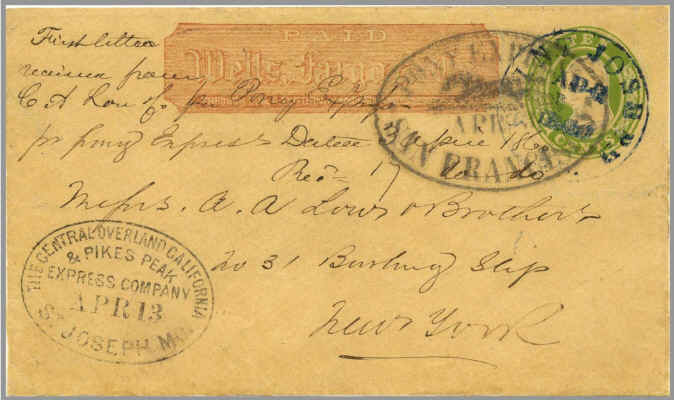 PAID
Wells, Fargo
First letter
received from
C A Low
pr Pony Express
PONY EXPRESS
APR
SAN FRANCISCO
JOSH
APR
pr pony Express Dated 186
Rec 17 do
Messrs. A. A Low & Brothers
No 31 Burling Slip
New York
THE CENTRAL OVERLAND CALIFORNIA
& PIKES PEAK
EXPRESS COMPANY
APR 13
ST. JOSEPH MO.